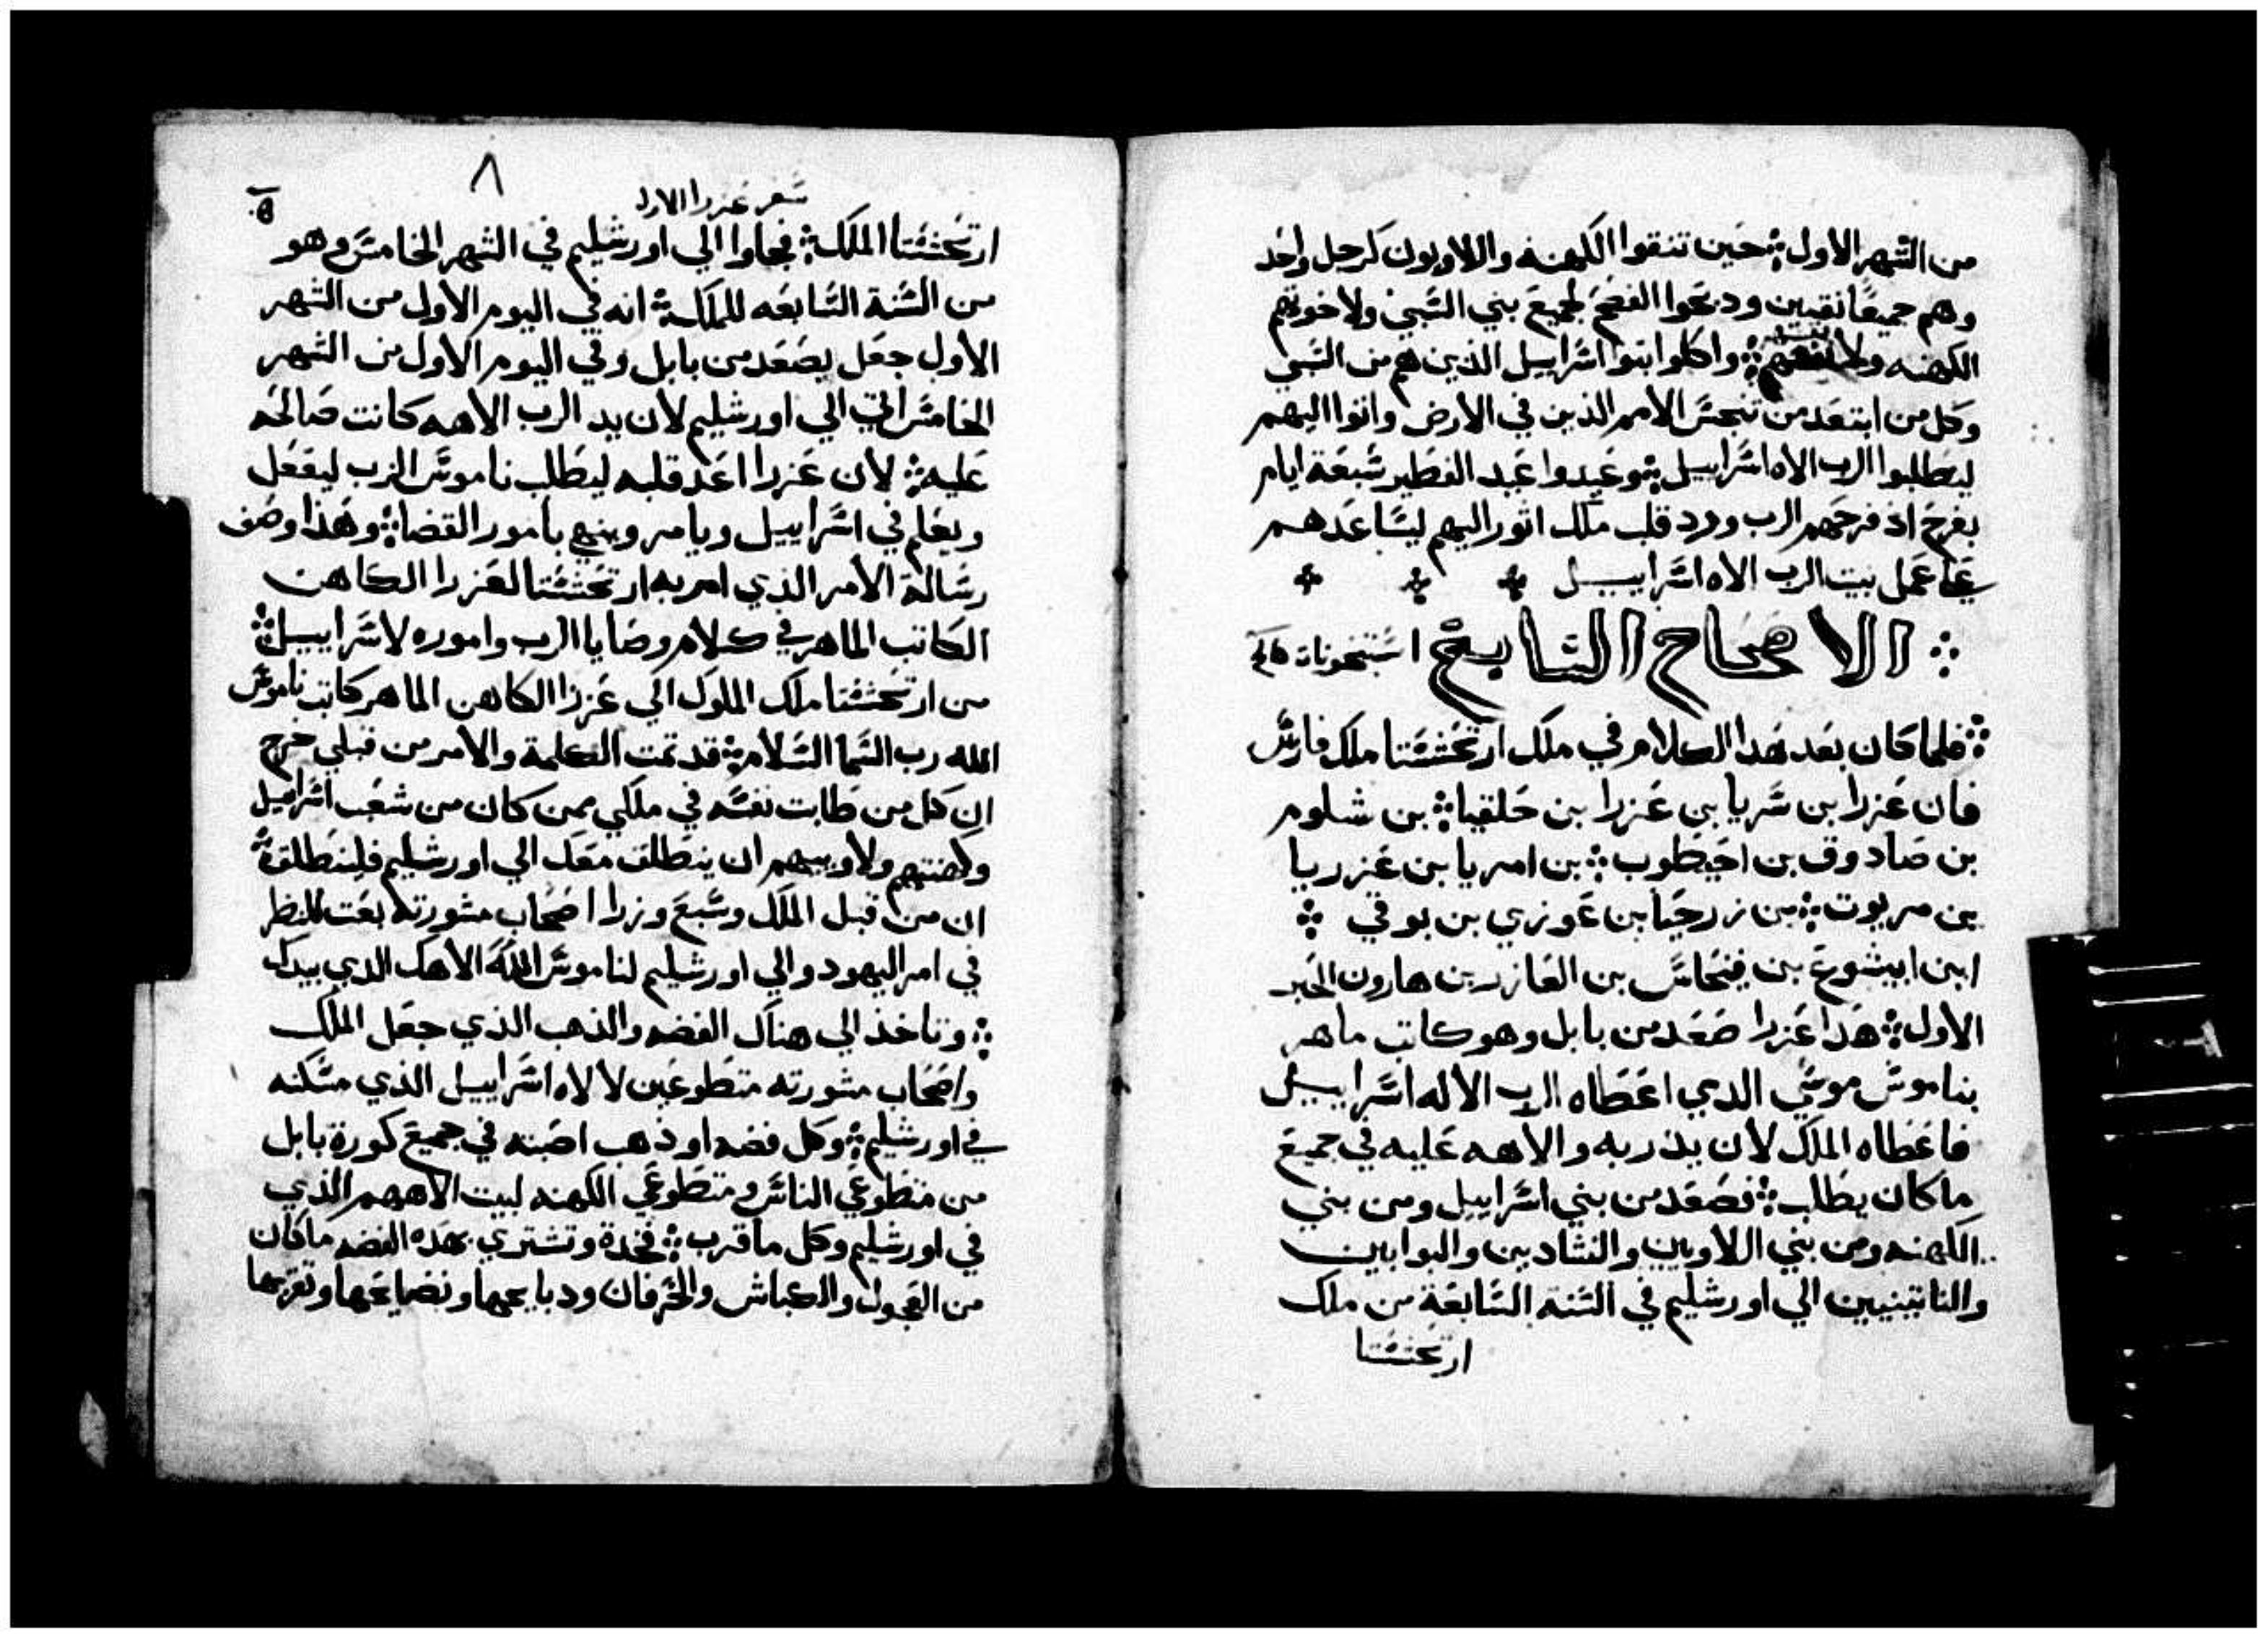 من الشهر الاول حين تنقوا الكهنه واللاويون كرجل واحد
وهم جميعا نقيين ودبحوا الفصح لجميع بني السبي ولاخوتهم
الكهنه واكلوا بنوا اسراييل الذين هم من السبي
وكل من ابتعد من تنجس الامم الذين في الارض واتوا اليهم
ليطلبوا الرب الاه اسراييل وعيدوا عيد الفطير سبعة ايام
بفرح اذ فرحهم الرب ورد قلب ملك اثور اليهم ليساعدهم
علي عمل بيت الرب الاه اسراييل
الاصحاح السابع
فلما كان بعد هدا الكلام في ملك ارتحششتا ملك فارس
فان عزرا بن سريا بن عزرا بن حلقيا بن شلوم
بن صادوق بن احيطوب بن امريا بن عزريا
بن مريوت بن زرحيا بن عوزي بن بوقي
ابن ابيشوع بن فينحاس بن العازر بن هارون الحبر
الاول هدا عزرا صعد من بابل وهو كاتب ماهر
بناموس موسي الدي اعطاه الرب الاله اسراييل
فاعطاه الملك لان يد ربه والاهه عليه في جميع
ما كان يطلب فصعد من بني اسراييل ومن بني
الكهنه ومن بني اللاويين والنشادين والبوابين
والناتينيين الي اورشليم في السنة السابعة من ملك
ارتحششتا
٨
سفر عزرا الاول
ارتحششتا الملك فجاوا الي اورشليم في الشهر الخامس وهو
من السنة السابعه للملك انه في اليوم الاول من الشهر
الاول جعل يصعد من بابل وفي اليوم الاول من الشهر
الخامس اتي الي اورشليم لان يد الرب الاهه كانت صالحه
عليه لان عزرا اعد قلبه ليطلب ناموس الرب ليفعل
ويعلم في اسراييل ويامر وينهي بامور القضا وهذا وصف
رسالة الامر الذي امر به ارتحششتا لعزرا الكاهن
الكاتب الماهر في كلام وصايا الرب واموره لاسراييل
من ارتحششتا ملك الملوك الي عزرا الكاهن الماهر كاتب ناموس
الله رب السما السلام قد تمت الكلمة والامر من قبلي خرج
ان كل من طابت نفسه في ملكي ممن كان من شعب اسراييل
وكهنتهم ولاوييهم ان ينطلق معك الي اورشليم فلينطلق
ان من قبل الملك وسبع وزرا اصحاب مشورته بعت للنظر
في امر اليهود والي اورشليم لناموس الله الاهك الدي بيدك
وتاخذ الي هناك الفضه والذهب الذي جعل الملك
واصحاب مشورته متطوعين لالاه اسراييل الذي مسكنه
في اورشليم وكل فضه او ذهب اصبته في جميع كورة بابل
من متطوعي الناس ومتطوعي الكهنه لبيت الاههم الذي
في اورشليم وكل ما قرب فخدة وتشتري بهده الفضه ما كان
من العجول والكباش والخرفان ودبايحها ونضايحها وتقربها